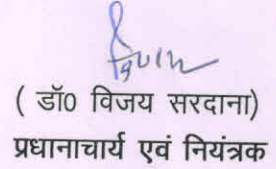 ( डॉ0 विजय सरदाना)
प्रधानाचार्य एवं नियंत्रक